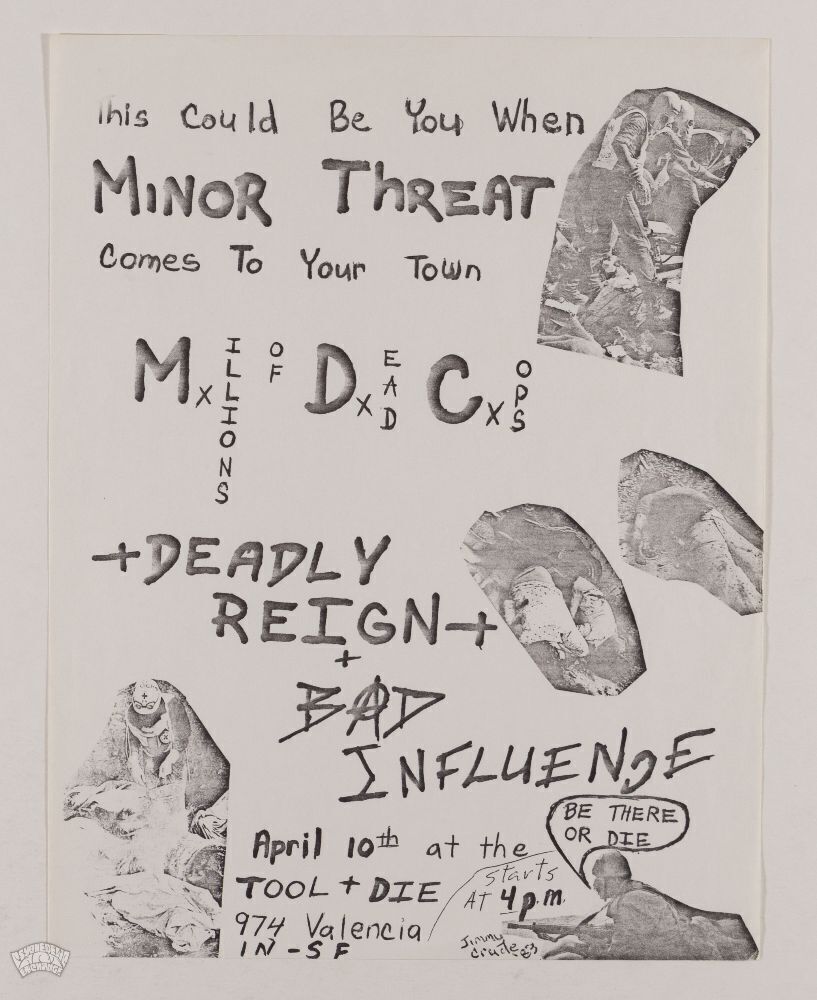 This Could Be You When
MINOR THREAT
Comes To Your Town
MxILLIONS OF DxEAD CxOPS
+DEADLY
REIGN+
+
BAD
INFLUENCE
BE THERE
OR DIE
April 10th at the
starts
AT 4p.m.
TOOL + DIE
974 Valencia
IN-SF
Jimmy
Crude